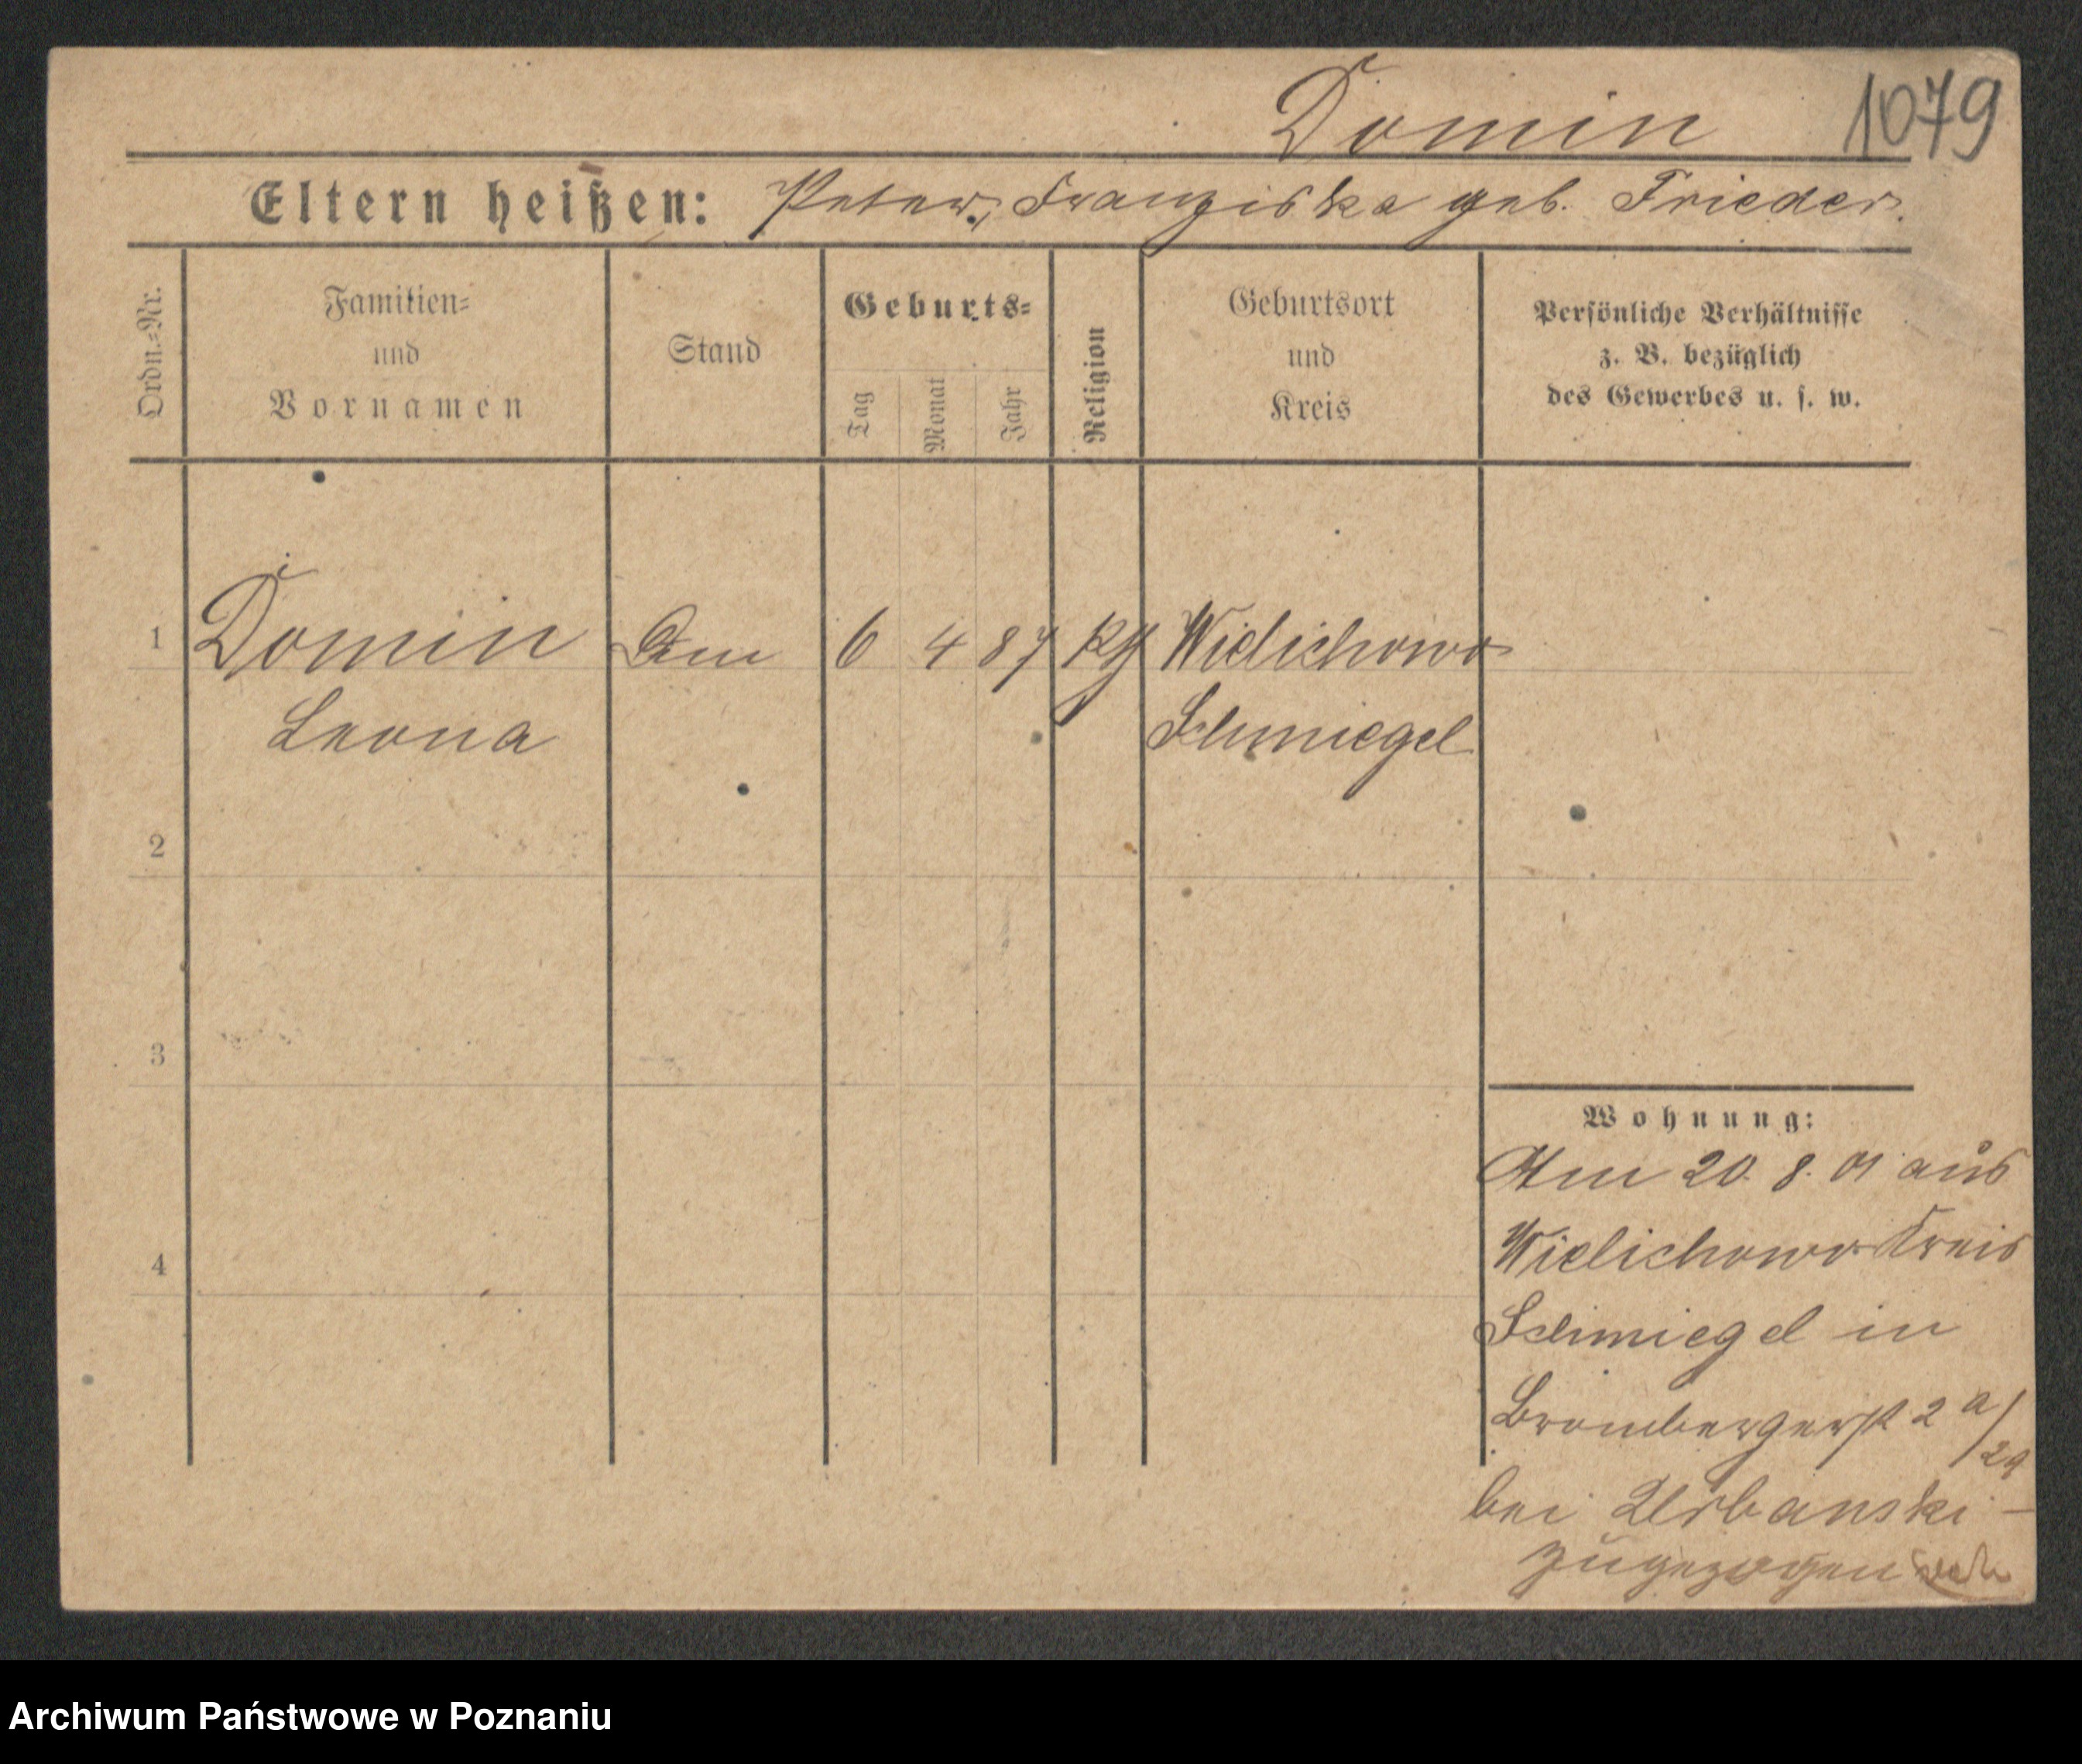 Domin 1079
Eltern heißen: Peter, Franziska geb. Frieder.
Ordn.=Nr.
Familien=
und
Vornamen
Stand
Geburts=
Tag
Monat
Jahr
Religion
Geburtsort
und
Kreis
Persönliche Verhältnisse
z. B. bezüglich
des Gewerbes u. s. w.
1 Domin 6 4 87 Wielichowo
Leona Schmiegel
2
3
4
Wohnung:
Am 20. 8. 01 aus
Wielichowo Kreis
Schmiegel in
Brombergerst 2 a/29
bei Urbanski -
zugezogen
Archiwum Państwowe w Poznaniu